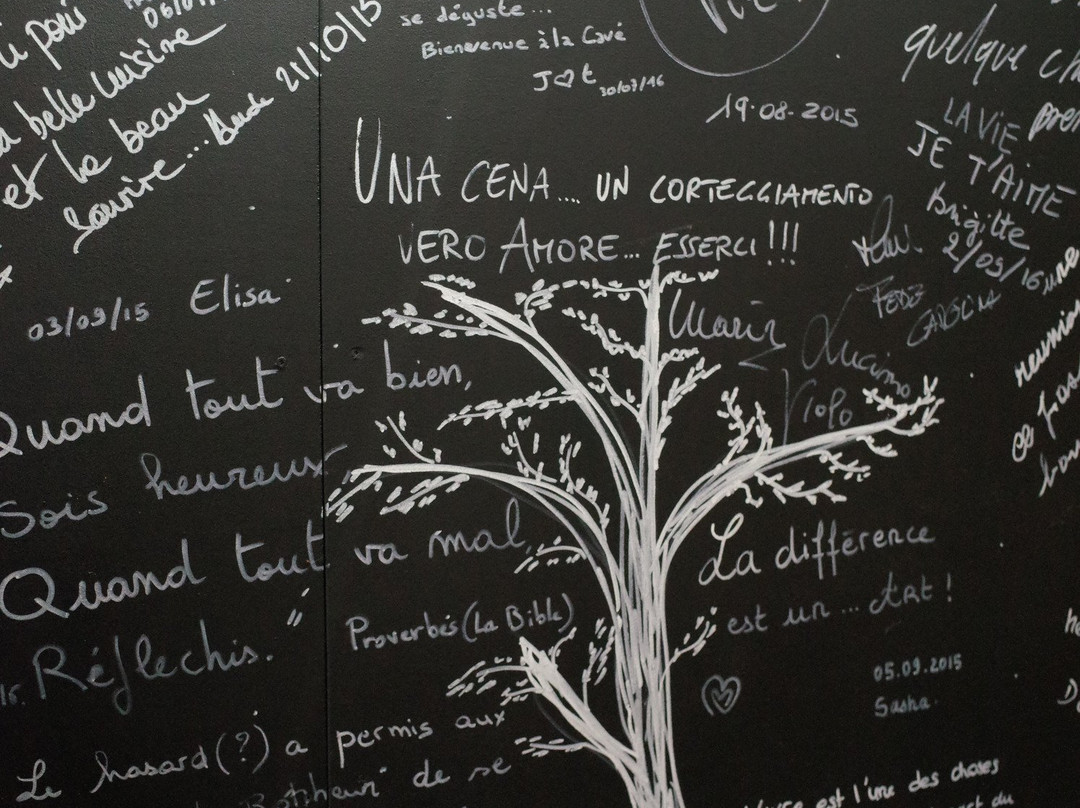 belle cuisine
et le beau
sourire... Aude 21/10/15
se déguste...
Bienvenue à la Cave
J♡t 30/07/16
19-08-2015
quelque
LA VIE
JE T'AIME
Brigitte
2/09/16
UNA CENA.... UN CORTEGGIAMENTO
VERO AMORE... ESSERCI!!!
03/09/15 Elisa
Quand tout va bien,
Sois heureux,
Quand tout va mal,
Réflechis."
Proverbés (La Bible)
Maria
Luciano
FEDE
La différence
est un... Art!
05.09.2015
Sasha.
Le hasard (?) a permis aux
de se
est l'une des choses